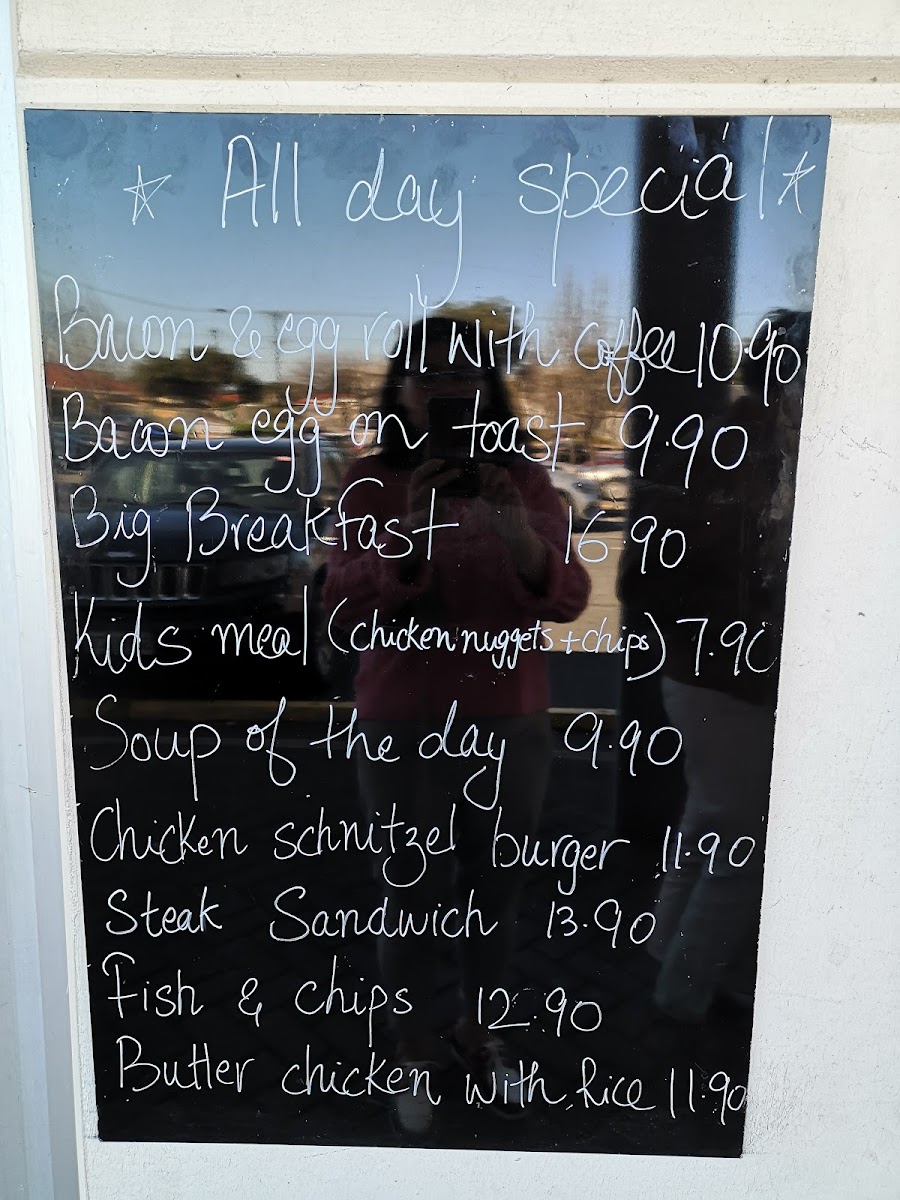 ☆ All day special ☆
Bacon & egg roll with coffee 10.90
Bacon egg on toast 9.90
Big Breakfast 16.90
Kids meal (chicken nuggets + chips) 7.90
Soup of the day 9.90
Chicken schnitzel burger 11.90
Steak Sandwich 13.90
Fish & chips 12.90
Butter chicken with Rice 11.90